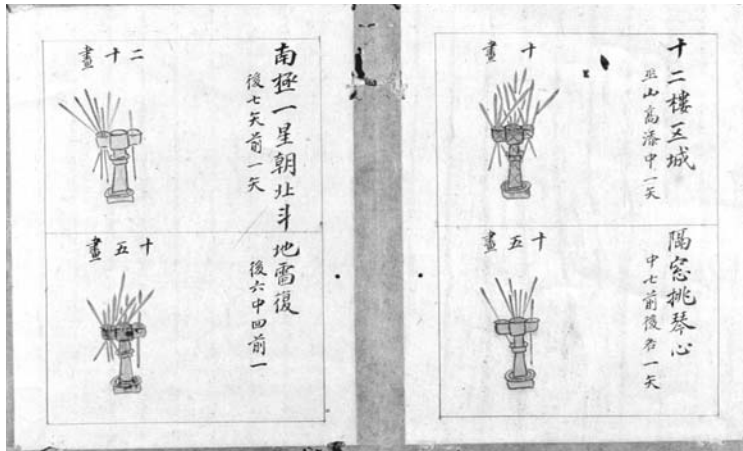 十二樓五城
巫山高添中一矢
十畫
隔窓挑琴心
中七前後各一矢
十五畫
南極一星朝北斗
後七矢前一矢
二十畫
地雷復
後六中四前一
十五畫